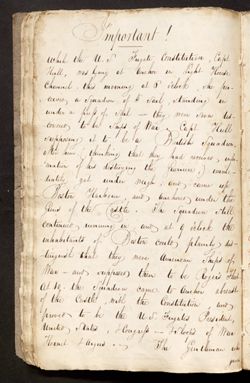 Important!
While the U S Frigate Constitution, Capt
Hull, was lying at Anchor in Light House
Channel, this morning at 8 o'clock, she
a Squadron of 5 Sail, standing in
under a press of Sail - they were soon dis-
covered to be Ships of War - Capt Hull
supposing it to be a British Squadron,
(thinking that they had received infor-
mation of his destroying the Guerriere) imme-
diately got under weigh, and came up
Boston Harbour, and anchored under the
Guns of the Castle. The Squadron still
continued running in and at 9 o'clock the
inhabitants of Boston could plainly dis-
tinguish that they were American Ships of
War - and supposed them to be Rogers' Fleet
At 10, the Squadron came to anchor abreast
of the Castle, with the Constitution, and
proved to be the U.S Frigates President,
United States, & Congress - & Sloops of War
Hornet & Argus. -
The Gentleman who